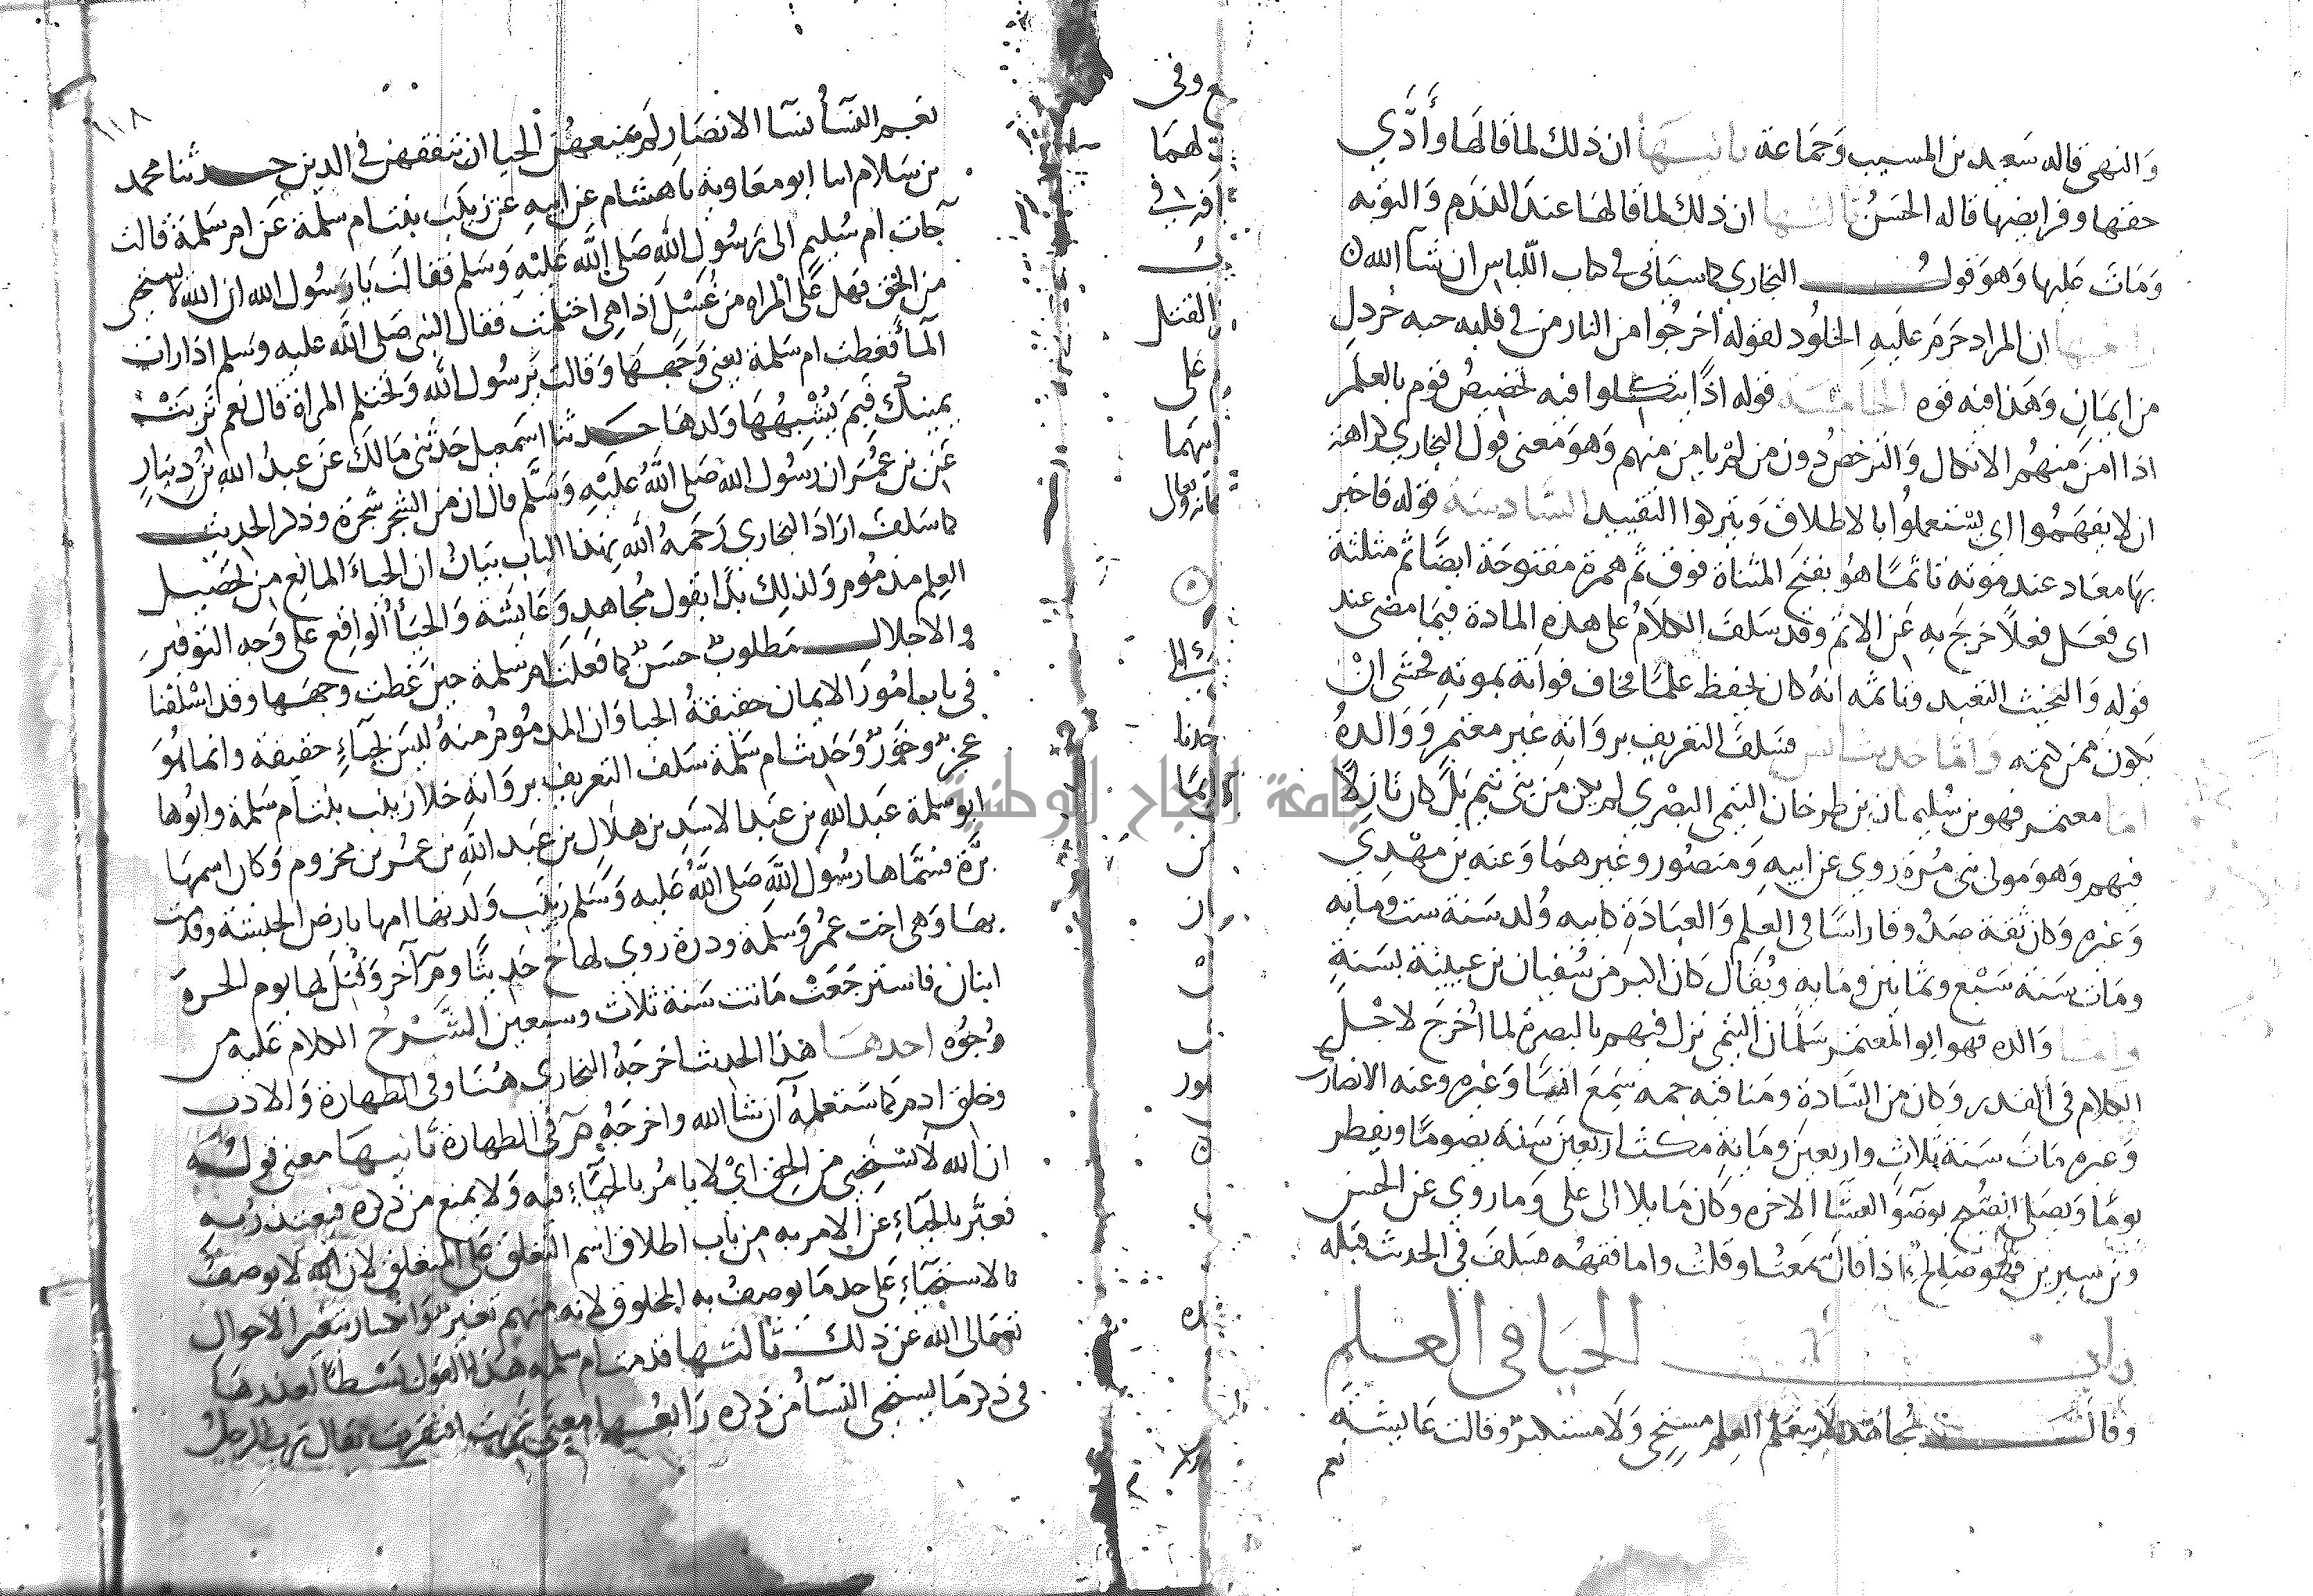 والنهى قاله سعيد بن المسيب وجماعة ثانيها ان ذلك لمن قالها وأدّي
حقها وفرايضها قاله الحسن ثالثها ان ذلك لمن قالها عند الندم والتوبه
ومات عليها وهو قول البخاري كما سيأتى فى كتاب اللباس ان شآ الله
رابعها ان المراد حرم عليه الخلود لقوله أخرجوا من النار من فى قلبه حبه خردل
من ايمان وهذا فيه قوه الخامسة قوله اذًا يتكلوا فيه تخصيص قوم بالعلم
اذا امن منهم الاتكال والترخص دون من لم يامن منهم وهو معنى قول البخاري كراهة
ان لا يفهموا اى يستعملوا بالاطلاق ويتركوا التقييد السادسة قوله فاخبر
بها معاد عند موته تاثما هو بفتح المثناة فوق ثم همزة مفتوحة ايضا ثم مثلثة
اى فعل فعلاً خرج به عن الاثم وقد سلف الكلام على هذه المادة فيما مضى عند
قوله والتحنث التعبد وتاثمه انه كان يحفظ علما فخاف فواته بموته فخشى ان
يكون ممن كتمه واما حديث انس فسلف التعريف برواته غير معتمر ووالده
اما معتمر فهو بن سليمان بن طرخان التيمى البصري لم يكن من بنى تيم بل كان نازلاً
فيهم وهو مولى بنى مرة روي عن ابيه ومنصور وغيرهما وعنه بن مهدي
وغيره وكان ثقة صدوقا راسا فى العلم والعبادة كابيه ولد سنة ست ومايه
ومات سنة سبع وثمانين ومايه ويقال كان اكبر من سفيان بن عيينة بسنة
واما والده فهو ابو المعتمر سلمان التيمى نزل فيهم بالبصرة لما اخرج لاجل
الكلام فى القدر وكان من السادة ومناقبه جمه سمع انسا وغيره وعنه الانصاري
وغيره مات سنة ثلاث واربعين ومايه مكث اربعين سنة يصوما ويفطر
يوما ويصلى الصبح بوضو العشا الاخره وكان مايلا الى على وما روي عن الحسن
وبن سيرين فهو صالح اذا قال سمعت او قلت واما فقهه فسلف فى الحديث قبله
باب الحيا فى العلم
وقال مجاهد لا يتعلم العلم مستحي ولا مستكبر وقالت عايشة
نعم
نعم النسأ نسآ الانصار لم يمنعهن الحيا ان تتفقهن فى الدين حدثنا محمد
بن سلام انبا ابو معاوية نا هشام عن ابيه عن زينب بنت ام سلمة عن ام سلمة قالت
جات ام سليم الى رسول الله صلى الله عليه وسلم فقالت يا رسول الله ان الله لا يستحى
من الحق فهل على المراه من غسل اذا هى احتلمت فقال النبى صلى الله عليه وسلم اذا رات
المآ فغطت ام سلمة يعنى وجهها وقالت يرسول الله وتحتلم المراة قال نعم تربت
يمينك فبم يشبهها ولدها حدثنا اسمعيل حدثنى مالك عن عبد الله بن دينار
عن بن عمر ان رسول الله صلى الله عليه وسلم قال ان من الشجر شجرة وذكر الحديث
كما سلف اراد البخاري رحمه الله بهذا الباب بيان ان الحياء المانع من تحصيل
العلم مذموم ولذلك بدا بقول مجاهد وعايشة والحيأ الواقع على وجه التوقير
والاجلال مطلوب حسن كما فعلت ام سلمة حين غطت وجهها وقد اسلفنا
فى باب امور الايمان حقيقة الحيا وان المذموم منه ليس بحياء حقيقة وانما هو
عجز وخور وحديث ام سلمة سلف التعريف برواته خلا زينب بنت ام سلمة وابوها
ابو سلمة عبد الله بن عبد الاسد بن هلال بن عبد الله بن عمر بن مخزوم وكان اسمها
برة فسماها رسول الله صلى الله عليه وسلم زينب ولدتها امها بارض الحبشة وقدمت
بها وهى اخت عمر وسلمة ودرة روي لها خ حديثا وم آخر وقتل لها يوم الحرة
ابنان فاسترجعت ماتت سنة ثلاث وسبعين الشرح الكلام عليه من
وجوه احدها هذا الحديث اخرجه البخاري هنا وفى الطهارة والادب
وخلق ادم كما ستعلمه ان شا الله واخرجه م فى الطهارة ثانيها معنى قوله
ان الله لا يستحيى من الحق اى لا يامر بالحيآء فيه ولا يمنع من ذكره
فعبر بالحيآء عن الامر به من باب اطلاق اسم التعلق على المتعلق لان الله لا يوصف
بالاستحيآء على حد ما يوصف به المخلوق لانه منهم تغير وانكسار بتغير الاحوال
تعالى الله عن ذلك ثالثها قدمت ام سلمه هذا القول بسطا لعذرها
فى ذكر ما يستحى النسأ من ذكره رابعها معنى تربت افتقرت يقال ترب الرجل